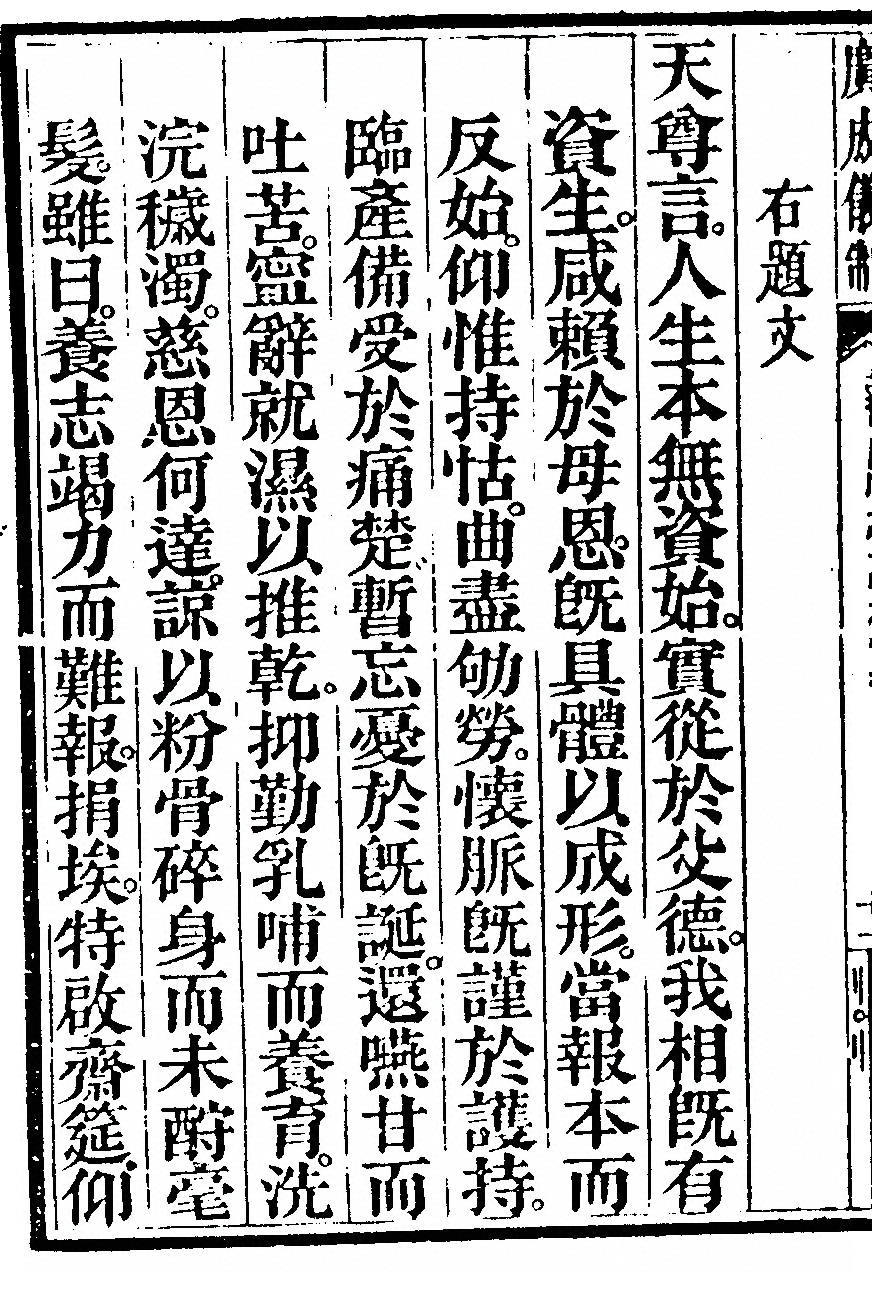 廣成儀制
右題文
天尊言。人生本無資始。實從於父德。我相旣有
資生。咸賴於母恩。旣具體以成形。當報本而
反始。仰惟持怙。曲盡劬勞。懷脈旣謹於護持。
臨產備受於痛楚。暫忘憂於旣誕。還嚥甘而
吐苦。寍辭就濕以推乾。抑勤乳哺而養育。洗
浣穢濁。慈恩何達。諒以粉骨碎身而未酧毫
髮。雖曰。養志竭力而難報。捐埃。特啟齋筵。仰